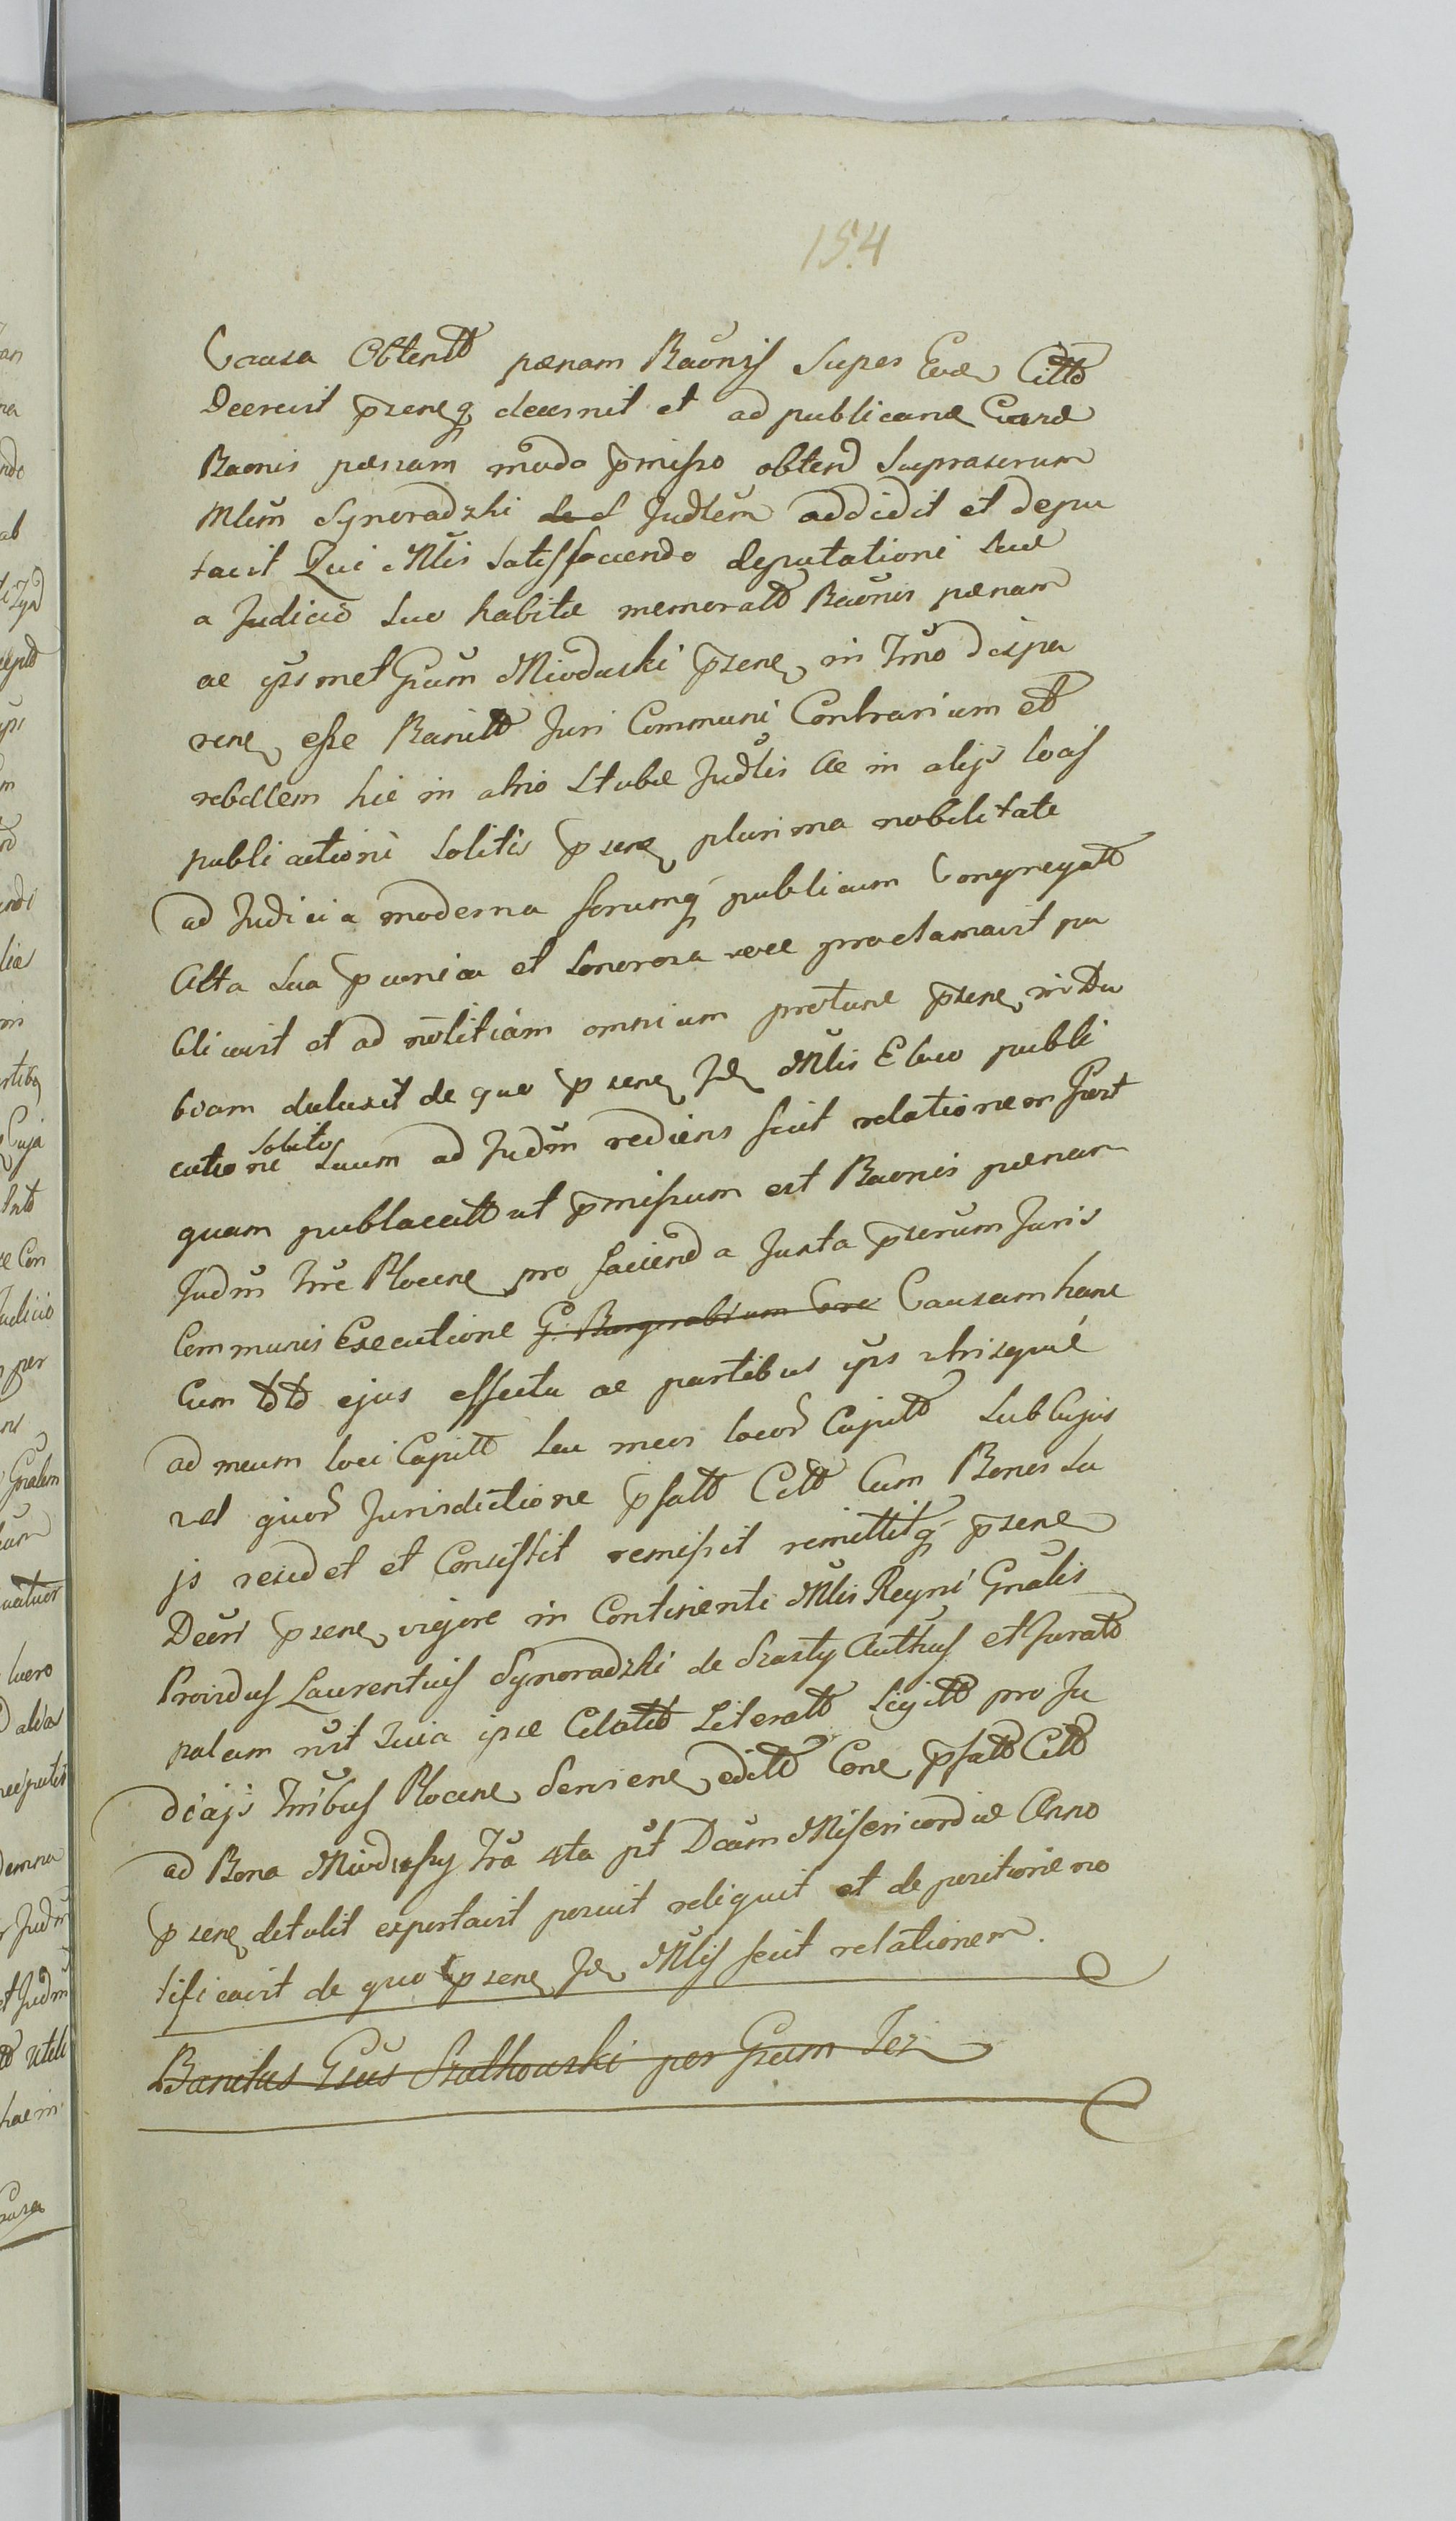 154
Causa Obtentt pænam Baõnis super Eod Cittõ
Decrevit p̃senq decernit et ad publicand Eand
Baonis pænam modo p̃misso obtend supraserum
Mlem Synoradzki de d Judlem addidit et depu
tavit Qui Mlis satisfaciendo deputationi suæ
a Judicio suo habitæ memoratt Baonis pænam
ac ipsmet Gsum Mioduski p̃sene in Tmo dispa
rene esse Banitt Juri Communi Contrarium et
rebellem hic in atrio stubæ Judlis ac in alijs locis
publicationi solitis p̃sene plurima nobilitate
ad Judicia moderna forumq publicum Congregatt
Alta sua p et sonorosa voce proclamavit pu
blicavit et ad notitiam omnium protunc p̃sene indu
biam deduxit de quo p̃sene Id Mlis E loco publi
catione solito suum ad Judm rediens fecit relationem Post
quam publicatt ut p̃missum est Baonis pænam
Judm Tre Plocen pro facienda Juxta p̃serum Juris
Communis Executione G. Burgrabium Cre Causam hanc
Cum toto ejus effectu ac partibus ips utrisque
ad meum loci Capitt seu meos locor Capitt sub Cujus
vel quor Jurisdictione p̃fatt Citt Cum Bonis su
is residet et Consistit remisit remittitq p̃sene
Decri p̃sene vigore in Continenti Mlis Regni Gnalis
Providus Laurentius Synoradzki de Szasty Authus et Juratt
palam rvit Quia ipse Citatt Literatt Sigitt pro Ju
dicijs Tribus Plocen Serviene editt Cone p̃fatt Citt
ad Bona Miodusy Fra 4ta pt Dcam Misericordiæ Anno
p̃sene detulit exportavit posuit reliquit et de positione no
tificavit de quo p̃sene Id Mlis fecit relationem.
Banitus Gsus Szulkowski per Gsum Jez